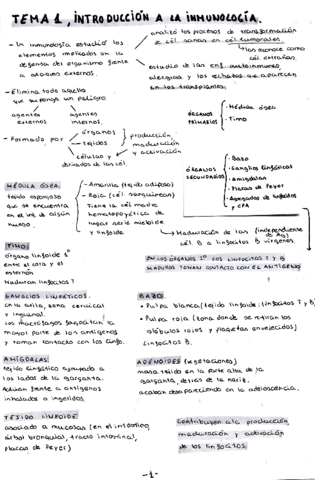 TEMA 1, INTRODUCCIÓN A LA INMUNOLOGÍA.
- La inmunología estudia los elementos implicados en la defensa del organismo frente a ataques externos.
analizó los procesos de transformación de cél. sanas en cél. tumorales
los reconoce como cél. extrañas.
estudio de las enf. autoinmunes, alérgicas y los rechazos que aparecen en los transplantes.
- Elimina todo aquello que suponga un peligro
agentes externos
agentes internos.
- Formado por
órganos
tejidos
células y derivados de las cél.
producción, maduración y activación
ÓRGANOS PRIMARIOS
- Médula ósea
- Timo
ÓRGANOS SECUNDARIOS
- Bazo
- Ganglios linfáticos
- Amígdalas
- Placas de Peyer
- Agregados de linfocitos y CPA
MÉDULA ÓSEA
tejido esponjoso que se encuentra en el int. de algún hueso
- Amarilla (tejido adiposo)
- Roja (cél. sanguíneas)
Tiene la cél madre hematopoyética da lugar serie mieloide y linfoide
Maduración de las cél. B a linfocitos B vírgenes.
(independiente de Ag)
TIMO
órgano linfoide 1º entre el cora y el esternón
Maduran linfocitos T
EN LOS ÓRGANOS 2º LOS LINFOCITOS T y B MADUROS TOMAN CONTACTO CON EL ANTÍGENO
GANGLIOS LINFÁTICOS.
en la axila, zona cervical y inguinal.
Los macrófagos fagocitan la mayor parte de los antígenos y toman contacto con los linfo.
BAZO
- Pulpa blanca (tejido linfoide: linfocitos T y B)
- Pulpa roja (zona donde se retiran los glóbulos rojos y plaquetas envejecidas)
linfocitos B.
AMÍGDALAS
tejido linfático agrupado a los lados de la garganta.
Actúan frente a antígenos inhalados o ingeridos.
ADENOIDES (vegetaciones)
masa tejido en la parte alta de la garganta, detrás de la nariz.
acaban desapareciendo en la adolescencia.
TEJIDO LINFOIDE
asociado a mucosas (en el intestino, árbol bronquial, tracto intestinal, placas de Peyer)
Contribuyen a la producción, maduración y activación de los linfocitos
-1-